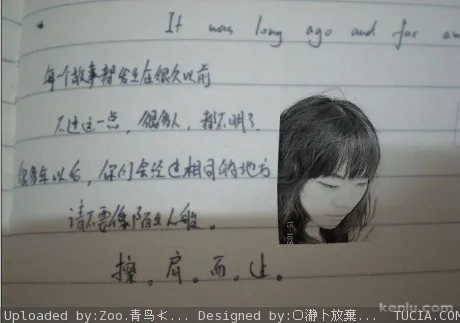 It was long ago and far aw
每个故事都会生在很久以前
不过这一点，很多人，都不明了
很多年以后，你们会经过相同的地方
请不要像陌生人般。
擦。肩。而。过。
kenlu.com
Uploaded by:Zoo.青鸟⺘... Designed by:〇瀞卜放棄... TUCIA.COM